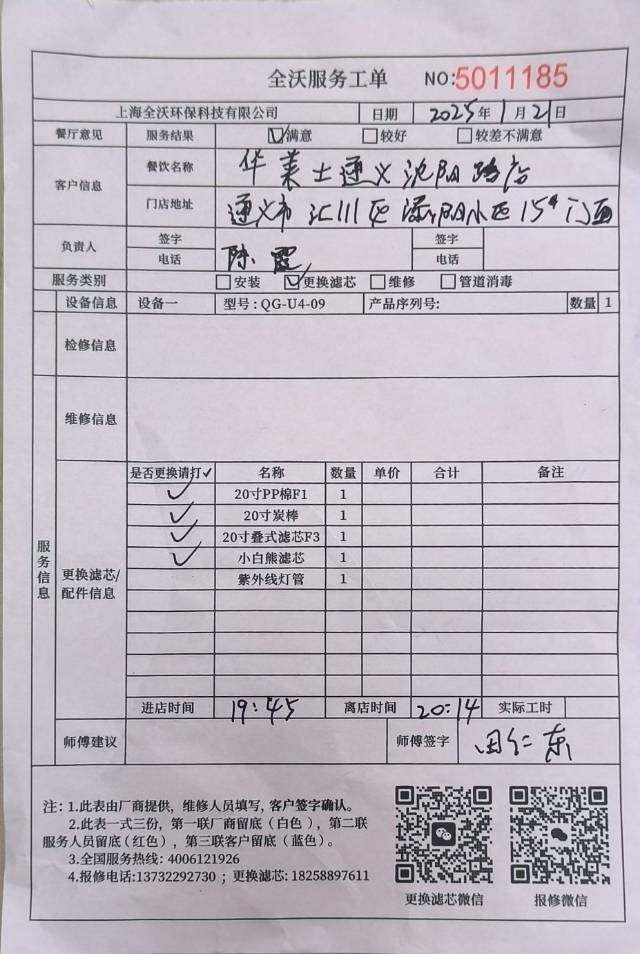 全沃服务工单 NO:5011185
上海全沃环保科技有限公司 日期 2025年1月21日
餐厅意见 服务结果 ☑满意 ☐较好 ☐较差不满意
客户信息 餐饮名称 华莱士遵义沈阳路店
门店地址 遵义市汇川区 阳小区15# 门面
负责人 签字 陈霞 签字
电话 电话
服务类别 ☐安装 ☑更换滤芯 ☐维修 ☐管道消毒
设备信息 设备一 型号:QG-U4-09 产品序列号: 数量 1
检修信息
维修信息
服务信息
更换滤芯/配件信息
是否更换请打✓ 名称 数量 单价 合计 备注
✓ 20寸PP棉F1 1
✓ 20寸炭棒 1
✓ 20寸叠式滤芯F3 1
✓ 小白熊滤芯 1
紫外线灯管 1
进店时间 19:45 离店时间 20:14 实际工时
师傅建议 师傅签字 田仁东
注: 1.此表由厂商提供, 维修人员填写, 客户签字确认。
2.此表一式三份, 第一联厂商留底(白色), 第二联
服务人员留底(红色), 第三联客户留底(蓝色)。
3.全国服务热线: 4006121926
4.报修电话:13732292730 ; 更换滤芯: 18258897611
更换滤芯微信 报修微信